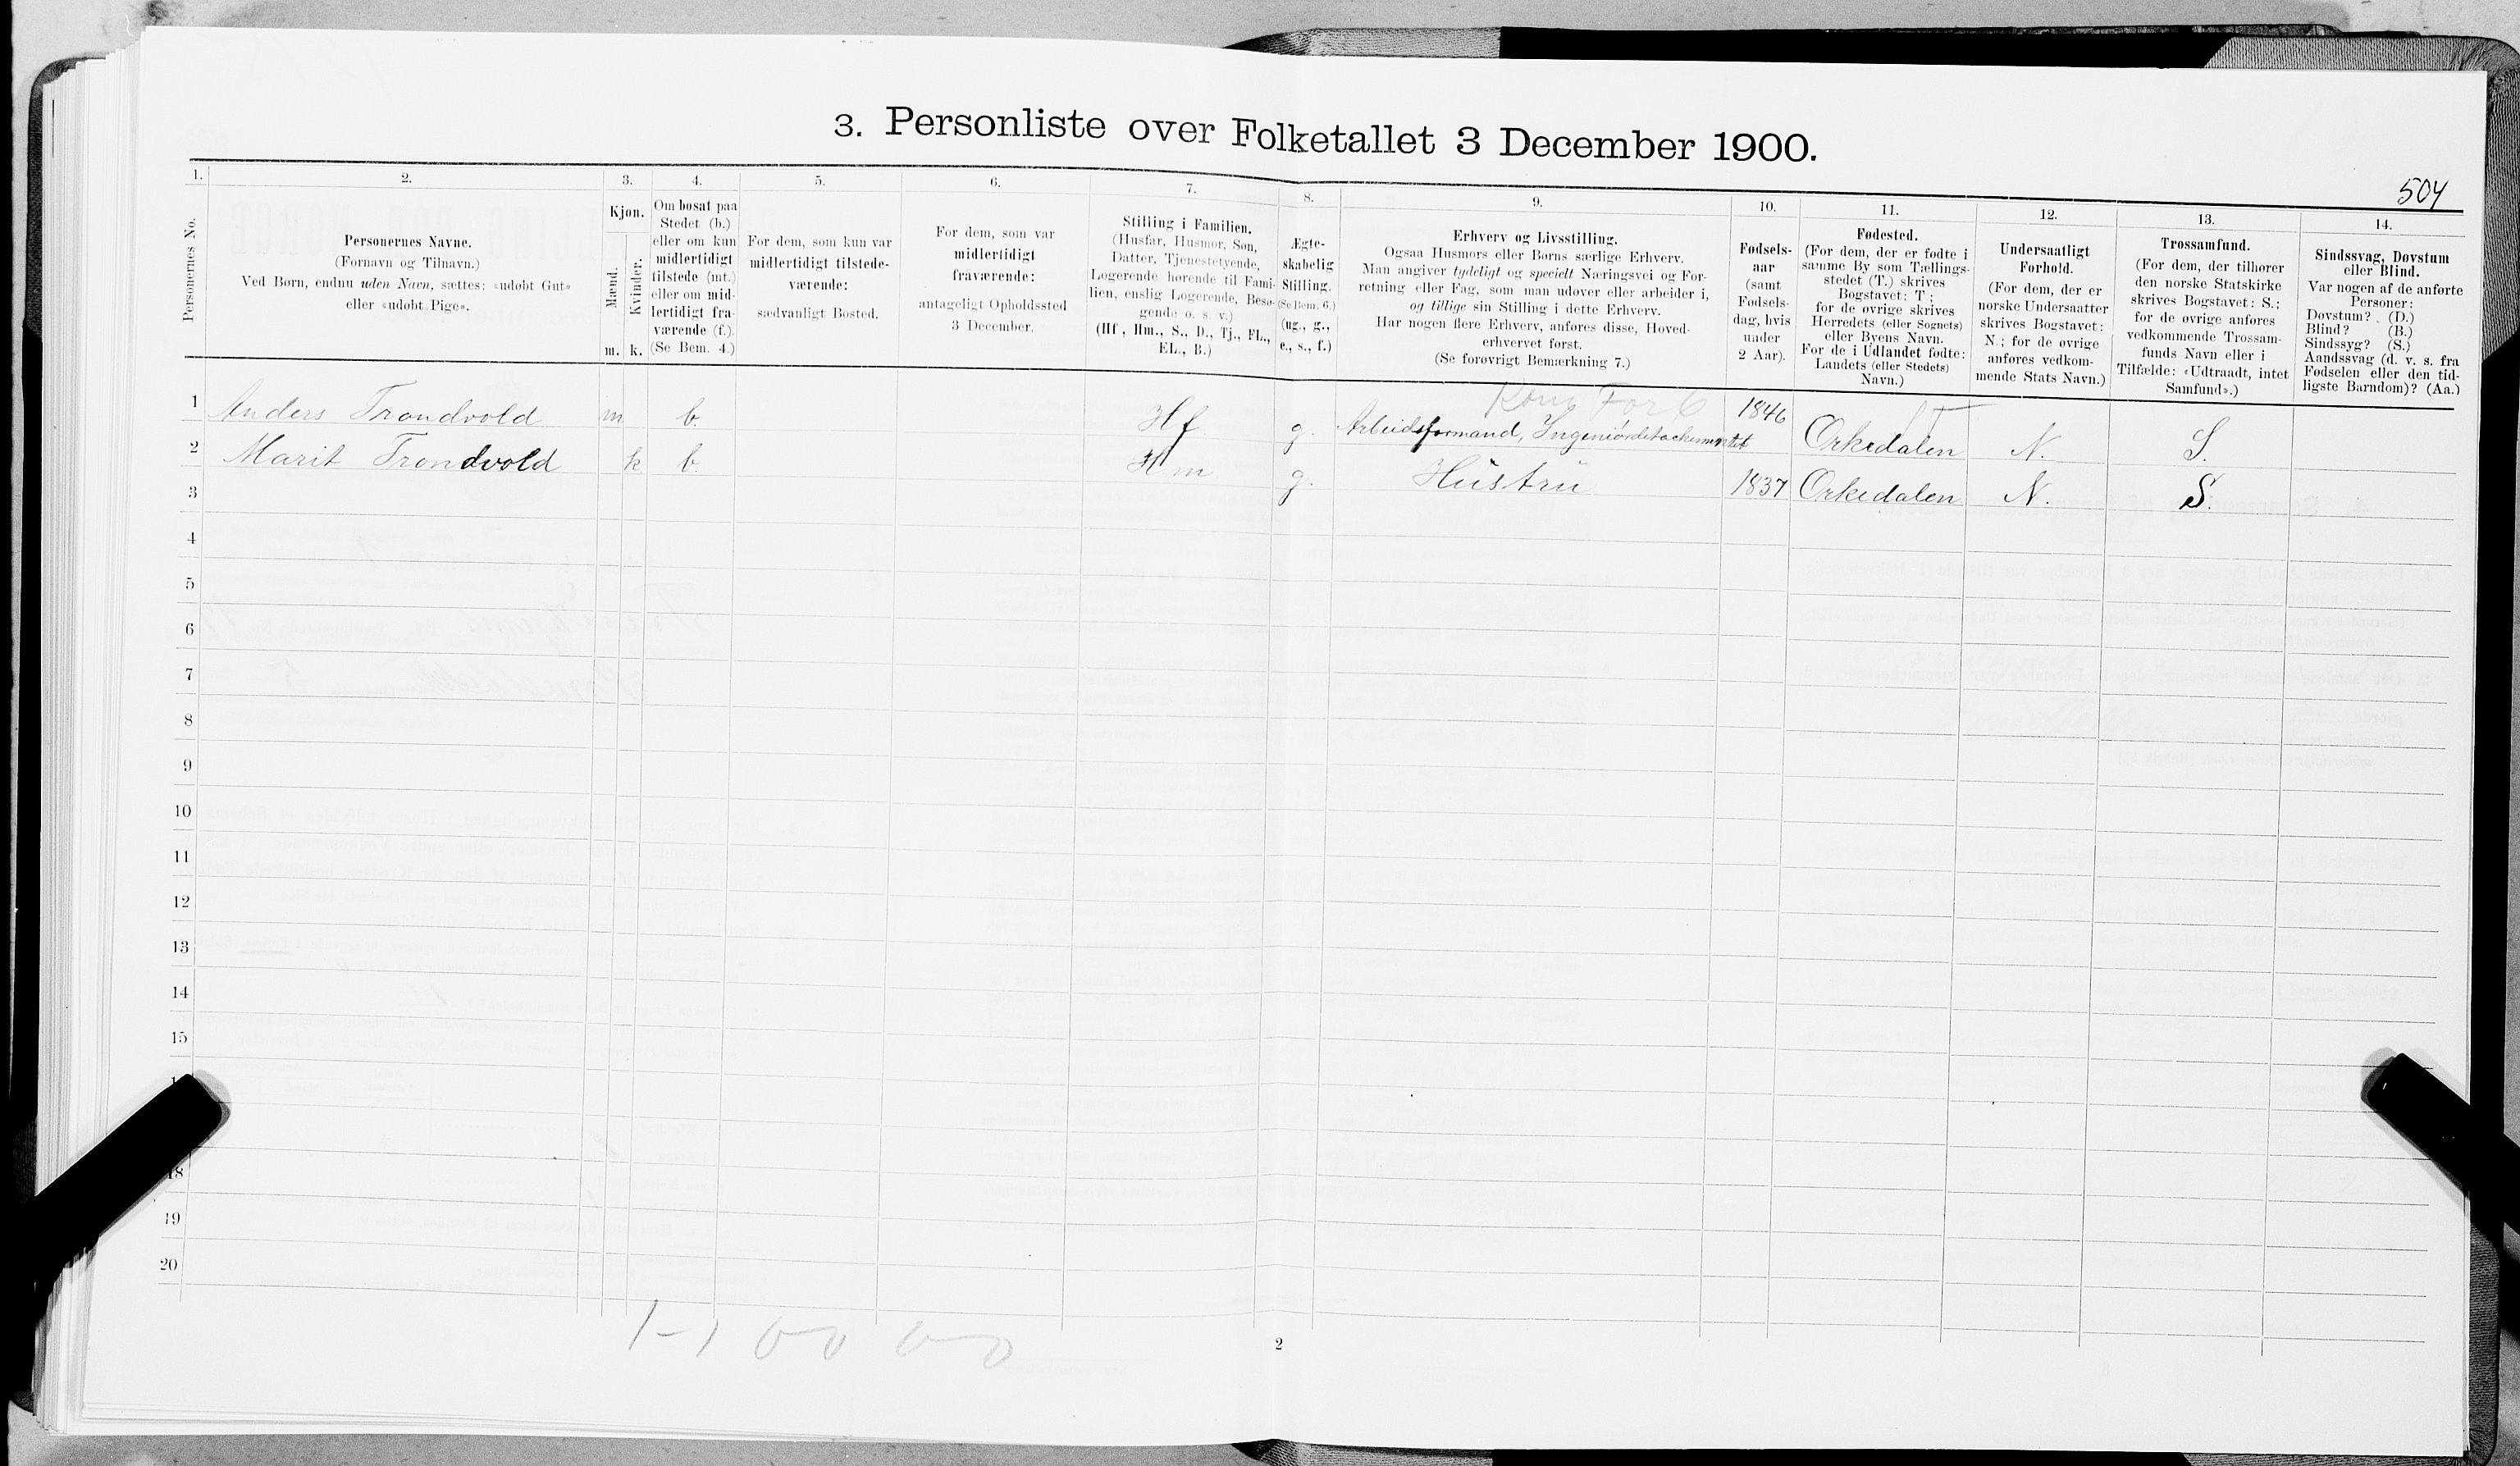 3. Personliste over Folketallet 3 December 1900.
504
1. 2. 3. 4. 5. 6. 7. 8. 9. 10. 11. 12. 13. 14.
Personernes No.
Personernes Navne.
(Fornavn og Tilnavn.)
Ved Børn, endnu uden Navn, sættes: «udøbt Gut»
eller «udøbt Pige».
Kjøn.
Mænd.
Kvinder.
m. k.
Om bosat paa
Stedet (b.)
eller om kun
midlertidigt
tilstede (mt.)
eller om mid-
lertidigt fra-
værende (f.).
(Se Bem. 4.)
For dem, som kun var
midlertidigt tilstede-
værende:
sædvanligt Bosted.
For dem, som var
midlertidigt
fraværende:
antageligt Opholdssted
3 December.
Stilling i Familien.
(Husfar, Husmor, Søn,
Datter, Tjenestetyende,
Logerende hørende til Fami-
lien, enslig Logerende, Besø-
gende o. s. v.)
(Hf., Hm., S., D., Tj., FL.,
EL., B.)
Ægte-
skabelig
Stilling.
(Se Bem. 6.)
(ug., g.,
e., s., f.)
Erhverv og Livsstilling.
Ogsaa Husmors eller Børns særlige Erhverv.
Man angiver tydeligt og specielt Næringsvei og For-
retning eller Fag, som man udøver eller arbeider i,
og tillige sin Stilling i dette Erhverv.
Har nogen flere Erhverv, anføres disse, Hoved-
erhvervet først.
(Se forøvrigt Bemærkning 7.)
Fødsels-
aar
(samt
Fødsels-
dag, hvis
under
2 Aar).
Fødested.
(For dem, der er fødte i
samme By som Tællings-
stedet (T.) skrives
Bogstavet: T;
for de øvrige skrives
Herredets (eller Sognets)
eller Byens Navn.
For de i Udlandet fødte:
Landets (eller Stedets)
Navn.)
Undersaatligt
Forhold.
(For dem, der er
norske Undersaatter
skrives Bogstavet:
N.; for de øvrige
anføres vedkom-
mende Stats Navn.)
Trossamfund.
(For dem, der tilhører
den norske Statskirke
skrives Bogstavet: S.;
for de øvrige anføres
vedkommende Trossam-
funds Navn eller i
Tilfælde: «Udtraadt, intet
Samfund».)
Sindssvag, Døvstum
eller Blind.
Var nogen af de anførte
Personer:
Døvstum? (D.)
Blind? (B.)
Sindssyg? (S.)
Aandssvag (d. v. s. fra
Fødselen eller den tid-
ligste Barndom)? (Aa.)
1 Anders Trondvold m b. Hf g. Arbeidsformand, Ingeniørdetachementet 1846 Orkedalen N. S.
2 Marit Trondvold k b. Hm g. Hustru 1837 Orkedalen N. S.
3
4
5
6
7
8
9
10
11
12
13
14
15
18
19
20
1-1 0-0 0-0
2